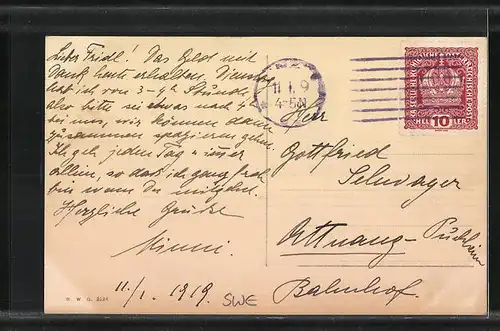 Lieber Fridl! Das Geld mit
Dank heute erhalten, Dienstag
hab ich von 3-4h Stunde
also bitte sei etwas nach 4h
bei mir, wir können dann
zusammen spazieren gehn.
Ich geh jeden Tag immer
allein, so daß ich ganz froh
bin wenn Du mitgehst.
Herzliche Grüße
Minni.
11./1. 1919.
SWE
W. W. G.
11 I. 9
4-5N
KAISERLICHE KÖNIGLICHE ÖSTERREICHISCHE POST
HELLER
10
Herr
Gottfried
Schwager
Attnang-Puchheim
Bahnhof.